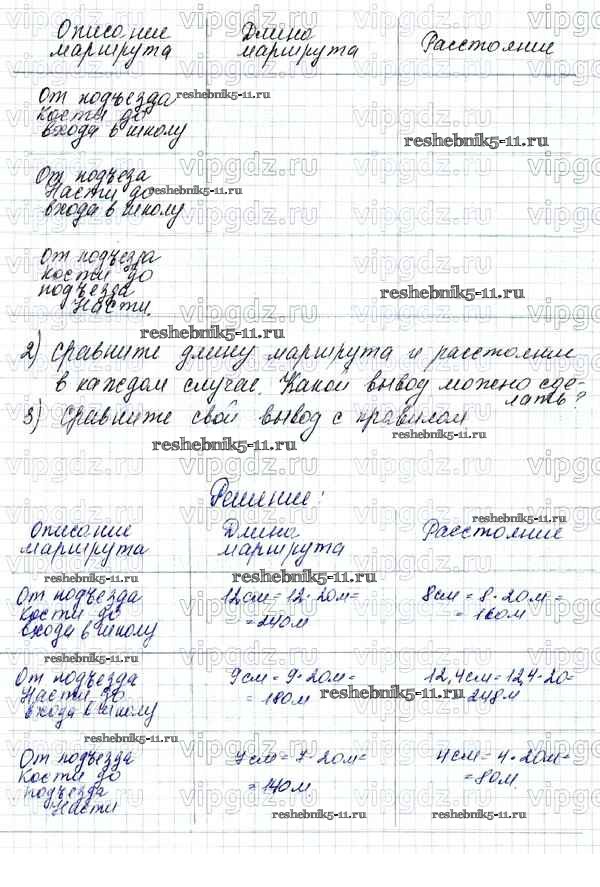 Описание Длина Расстояние
маршрута маршрута
От подъезда
Кости до
входа в школу
От подъеза
Насти до
входа в школу
От подъезда
Кости до
подъезда
Насти.
2) Сравните длину маршрута и расстояние
в каждом случае. Какой вывод можно сде-
лать?
3) Сравните свой вывод с правилом
Решение:
Описание Длина Расстояние
маршрута маршрута
От подъезда 12см = 12·20м= 8см = 8·20м =
Кости до = 240м = 160м
входа в школу
От подъезда 9см = 9·20м= 12,4см = 12,4·20=
Насти до = 180м = 248м
входа в школу
От подъезда 7см = 7·20м= 4см = 4·20м=
Кости до = 140м. = 80м.
подъезда
Насти
reshebnik5-11.ru
vipgdz.ru